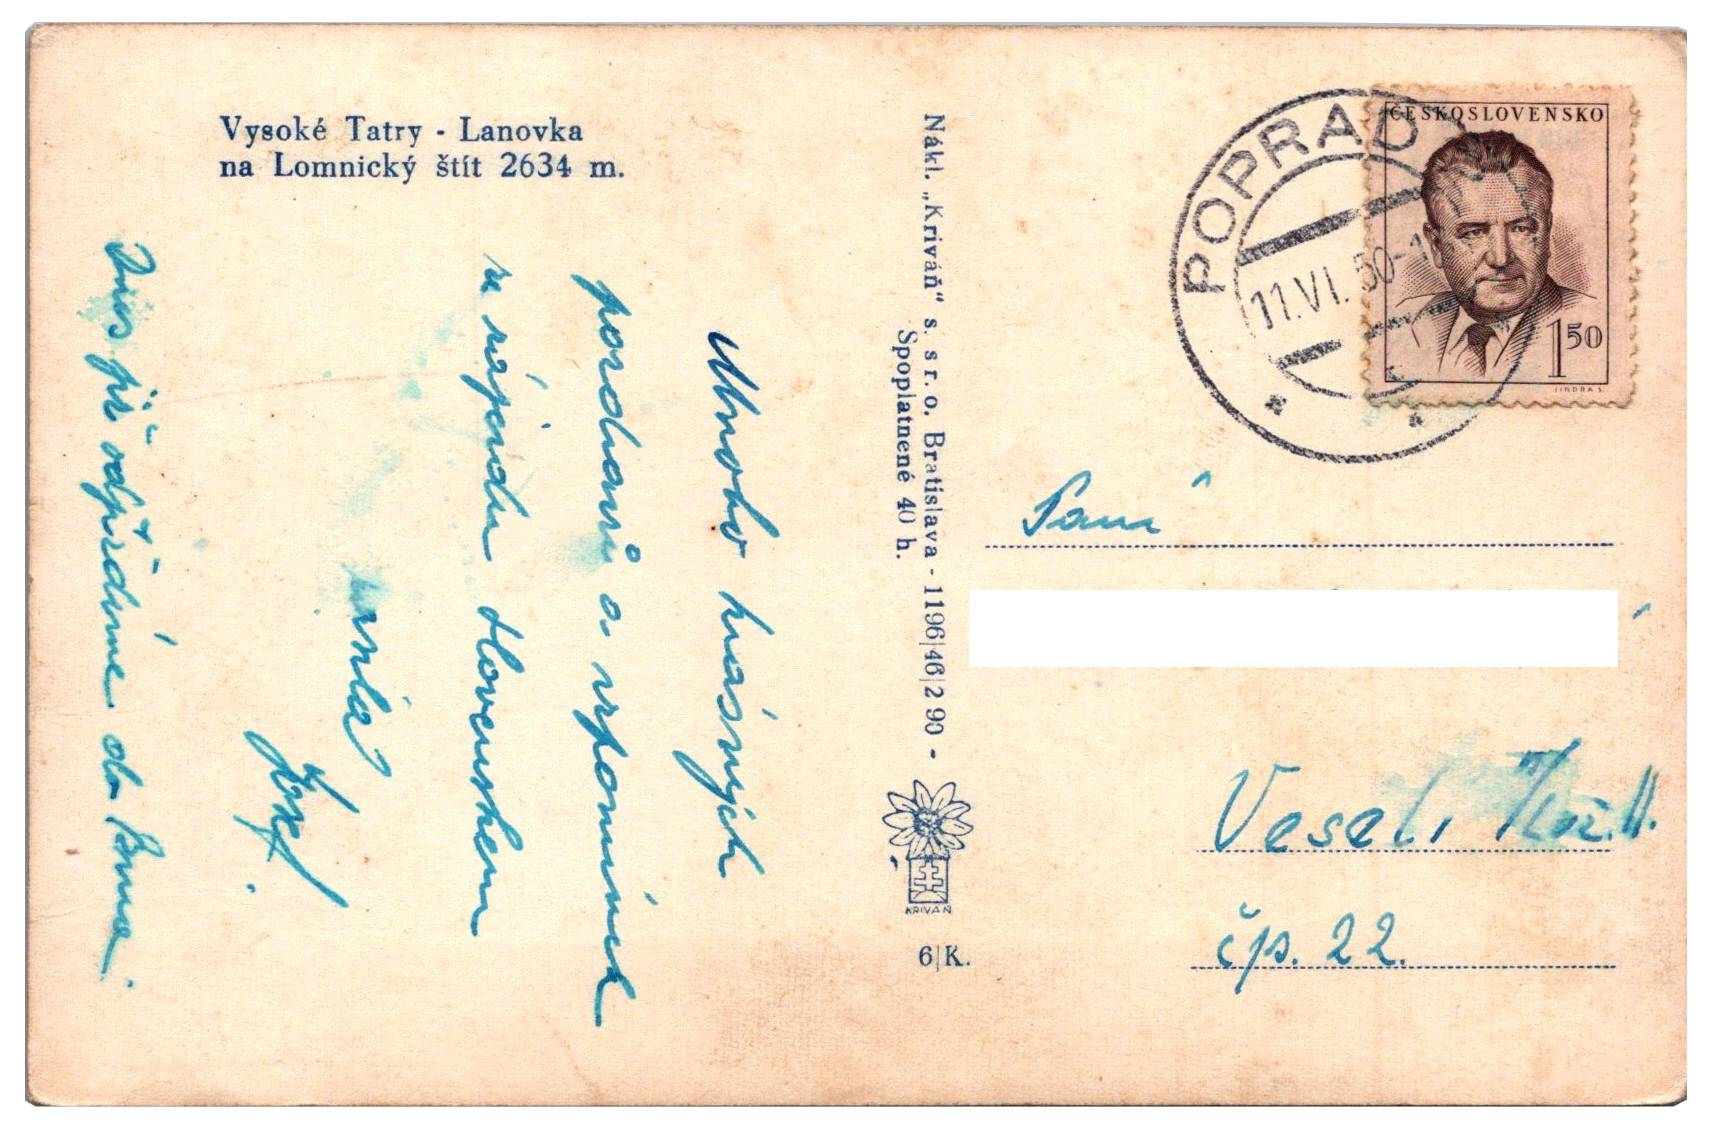 Vysoké Tatry - Lanovka
na Lomnický štít 2634 m.
Mnoho krásných
pozdravů a vzpomínek
ze zájezdu Slovenskem
Josef
Dnes již odjíždíme do Brna.
Nákl. „Kriváň“ s. s r. o. Bratislava - 1196|46|2 90 -
Spoplatnené 40 h.
KRIVÁŇ
6|K.
POPRAD
11.VI.50-1
ČESKOSLOVENSKO
1 50
JINDRA S.
Paní
Veselí n/Luž.
čp. 22.